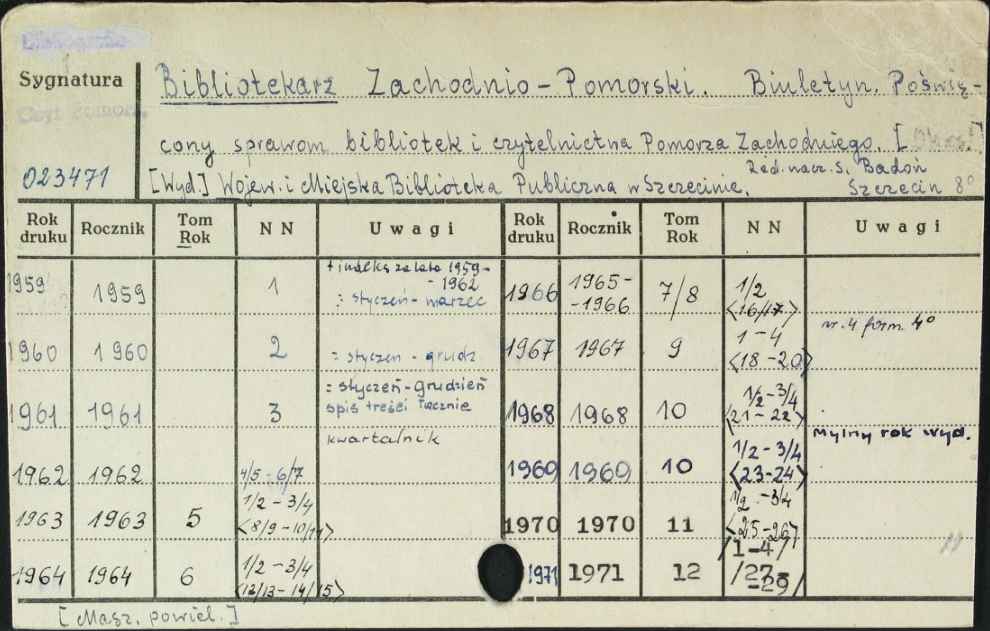 Sygnatura
Bibliotekarz Zachodnio-Pomorski. Biuletyn. Poświę-
Czyt. Pomorz.
cony sprawom bibliotek i czytelnictwa Pomorza Zachodniego. [
Red. nacz. S. Badoń
023471 [Wyd.] Wojew. i Miejska Biblioteka Publiczna w Szczecinie. Szczecin 8°
Rok druku Rocznik Tom Rok NN Uwagi Rok druku Rocznik Tom Rok NN Uwagi
1959 1959 1 + indeks za lata 1959-
-1962
: styczeń - marzec
1966 1965-
-1966 7/8 1/2
<16/17>
1960 1960 2 : styczeń - grudz
1967 1967 9 1-4
<18-20> nr. 4 form. 4°
1961 1961 3 : styczeń-grudzień
spis treści łącznie
kwartalnik
1968 1968 10 1/2-3/4
<21-22>
1962 1962 4/5-6/7
1969 1969 10 1/2-3/4
<23-24> mylny rok wyd.
1963 1963 5 1/2-3/4
<8/9-10/11>
1970 1970 11 1/2-3/4
<25-26>
1964 1964 6 1/2-3/4
<12/13-14/15>
1971 1971 12 /1-4/
/27-
-29/
[Masz. powiel.]